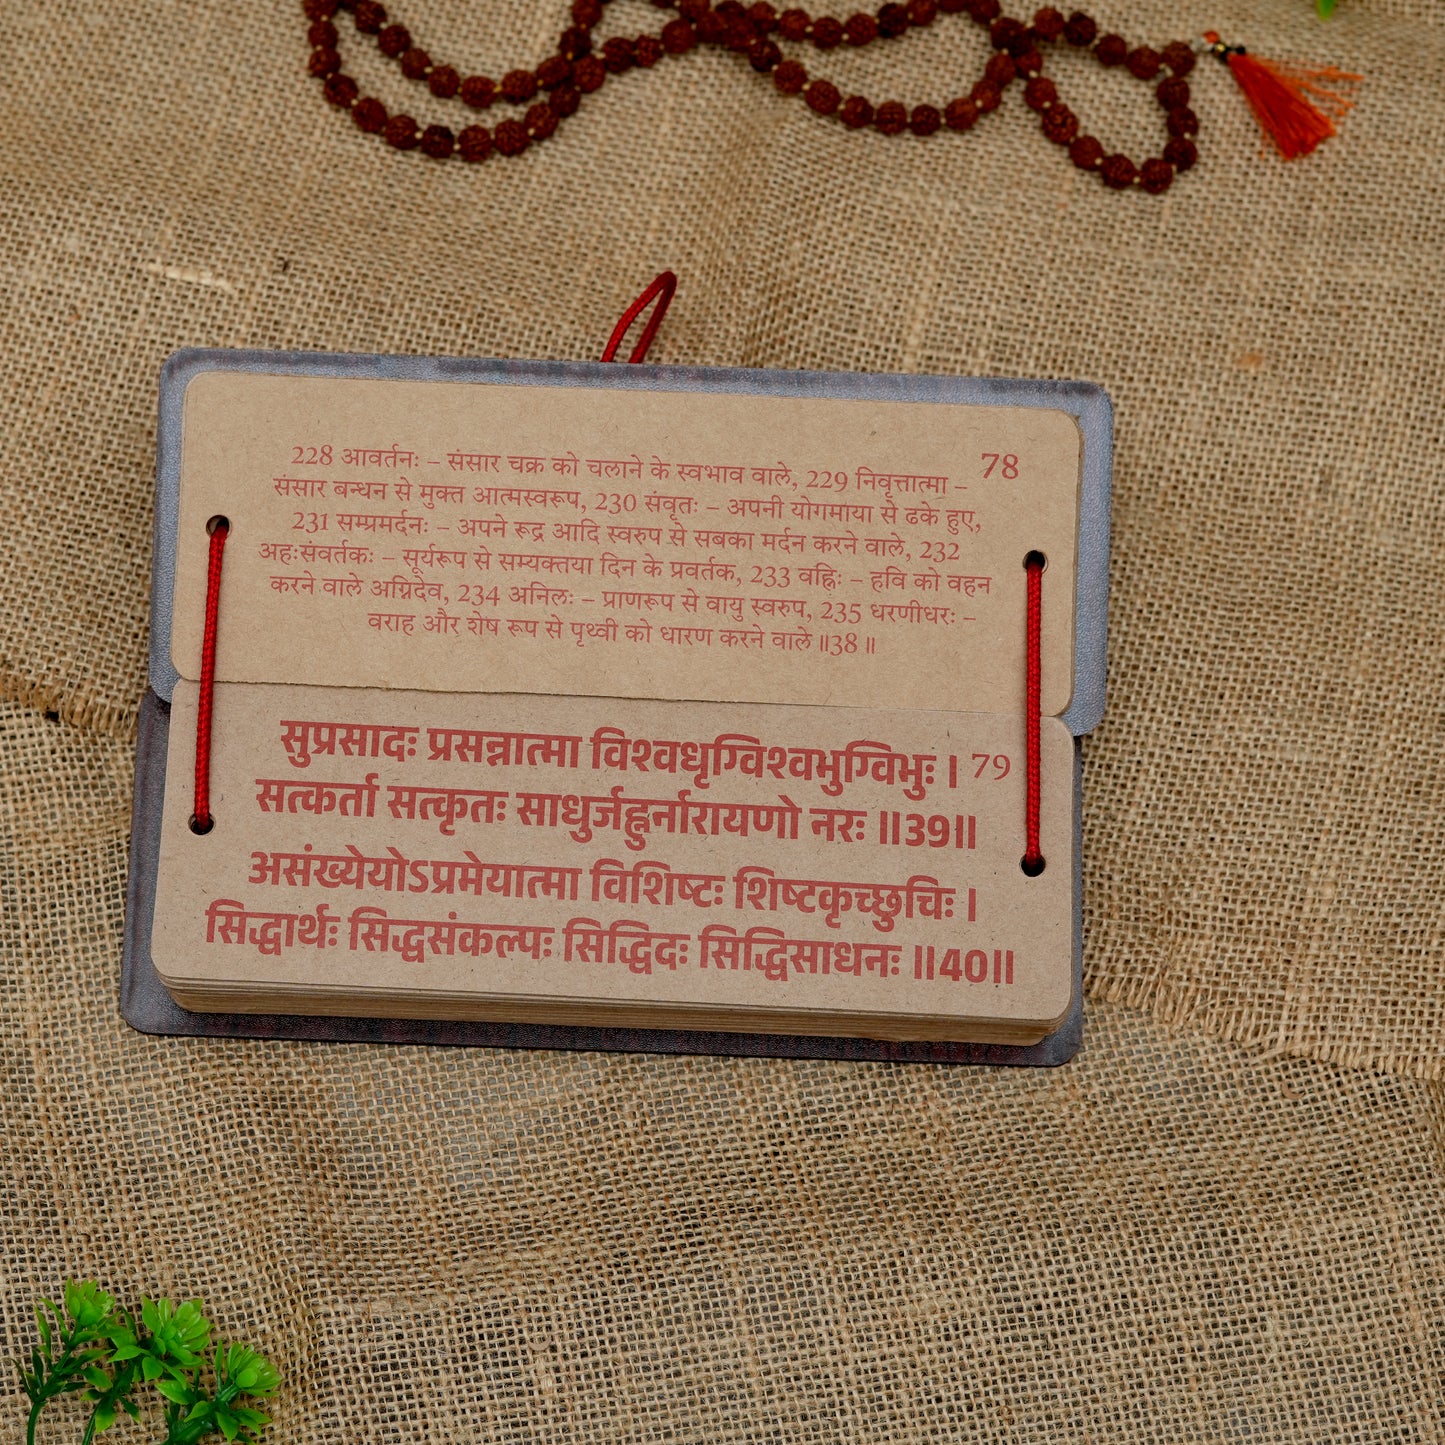 78
228 आवर्तनः – संसार चक्र को चलाने के स्वभाव वाले, 229 निवृत्तात्मा –
संसार बन्धन से मुक्त आत्मस्वरूप, 230 संवृतः – अपनी योगमाया से ढके हुए,
231 सम्प्रमर्दनः – अपने रूद्र आदि स्वरुप से सबका मर्दन करने वाले, 232
अहःसंवर्तकः – सूर्यरूप से सम्यक्तया दिन के प्रवर्तक, 233 वह्निः – हवि को वहन
करने वाले अग्निदेव, 234 अनिलः – प्राणरूप से वायु स्वरुप, 235 धरणीधरः –
वराह और शेष रूप से पृथ्वी को धारण करने वाले ॥38॥
79
सुप्रसादः प्रसन्नात्मा विश्वधृग्विश्वभुग्विभुः ।
सत्कर्ता सत्कृतः साधुर्जह्नुर्नारायणो नरः ॥39॥
असंख्येयोऽप्रमेयात्मा विशिष्टः शिष्टकृच्छुचिः ।
सिद्धार्थः सिद्धसंकल्पः सिद्धिदः सिद्धिसाधनः ॥40॥